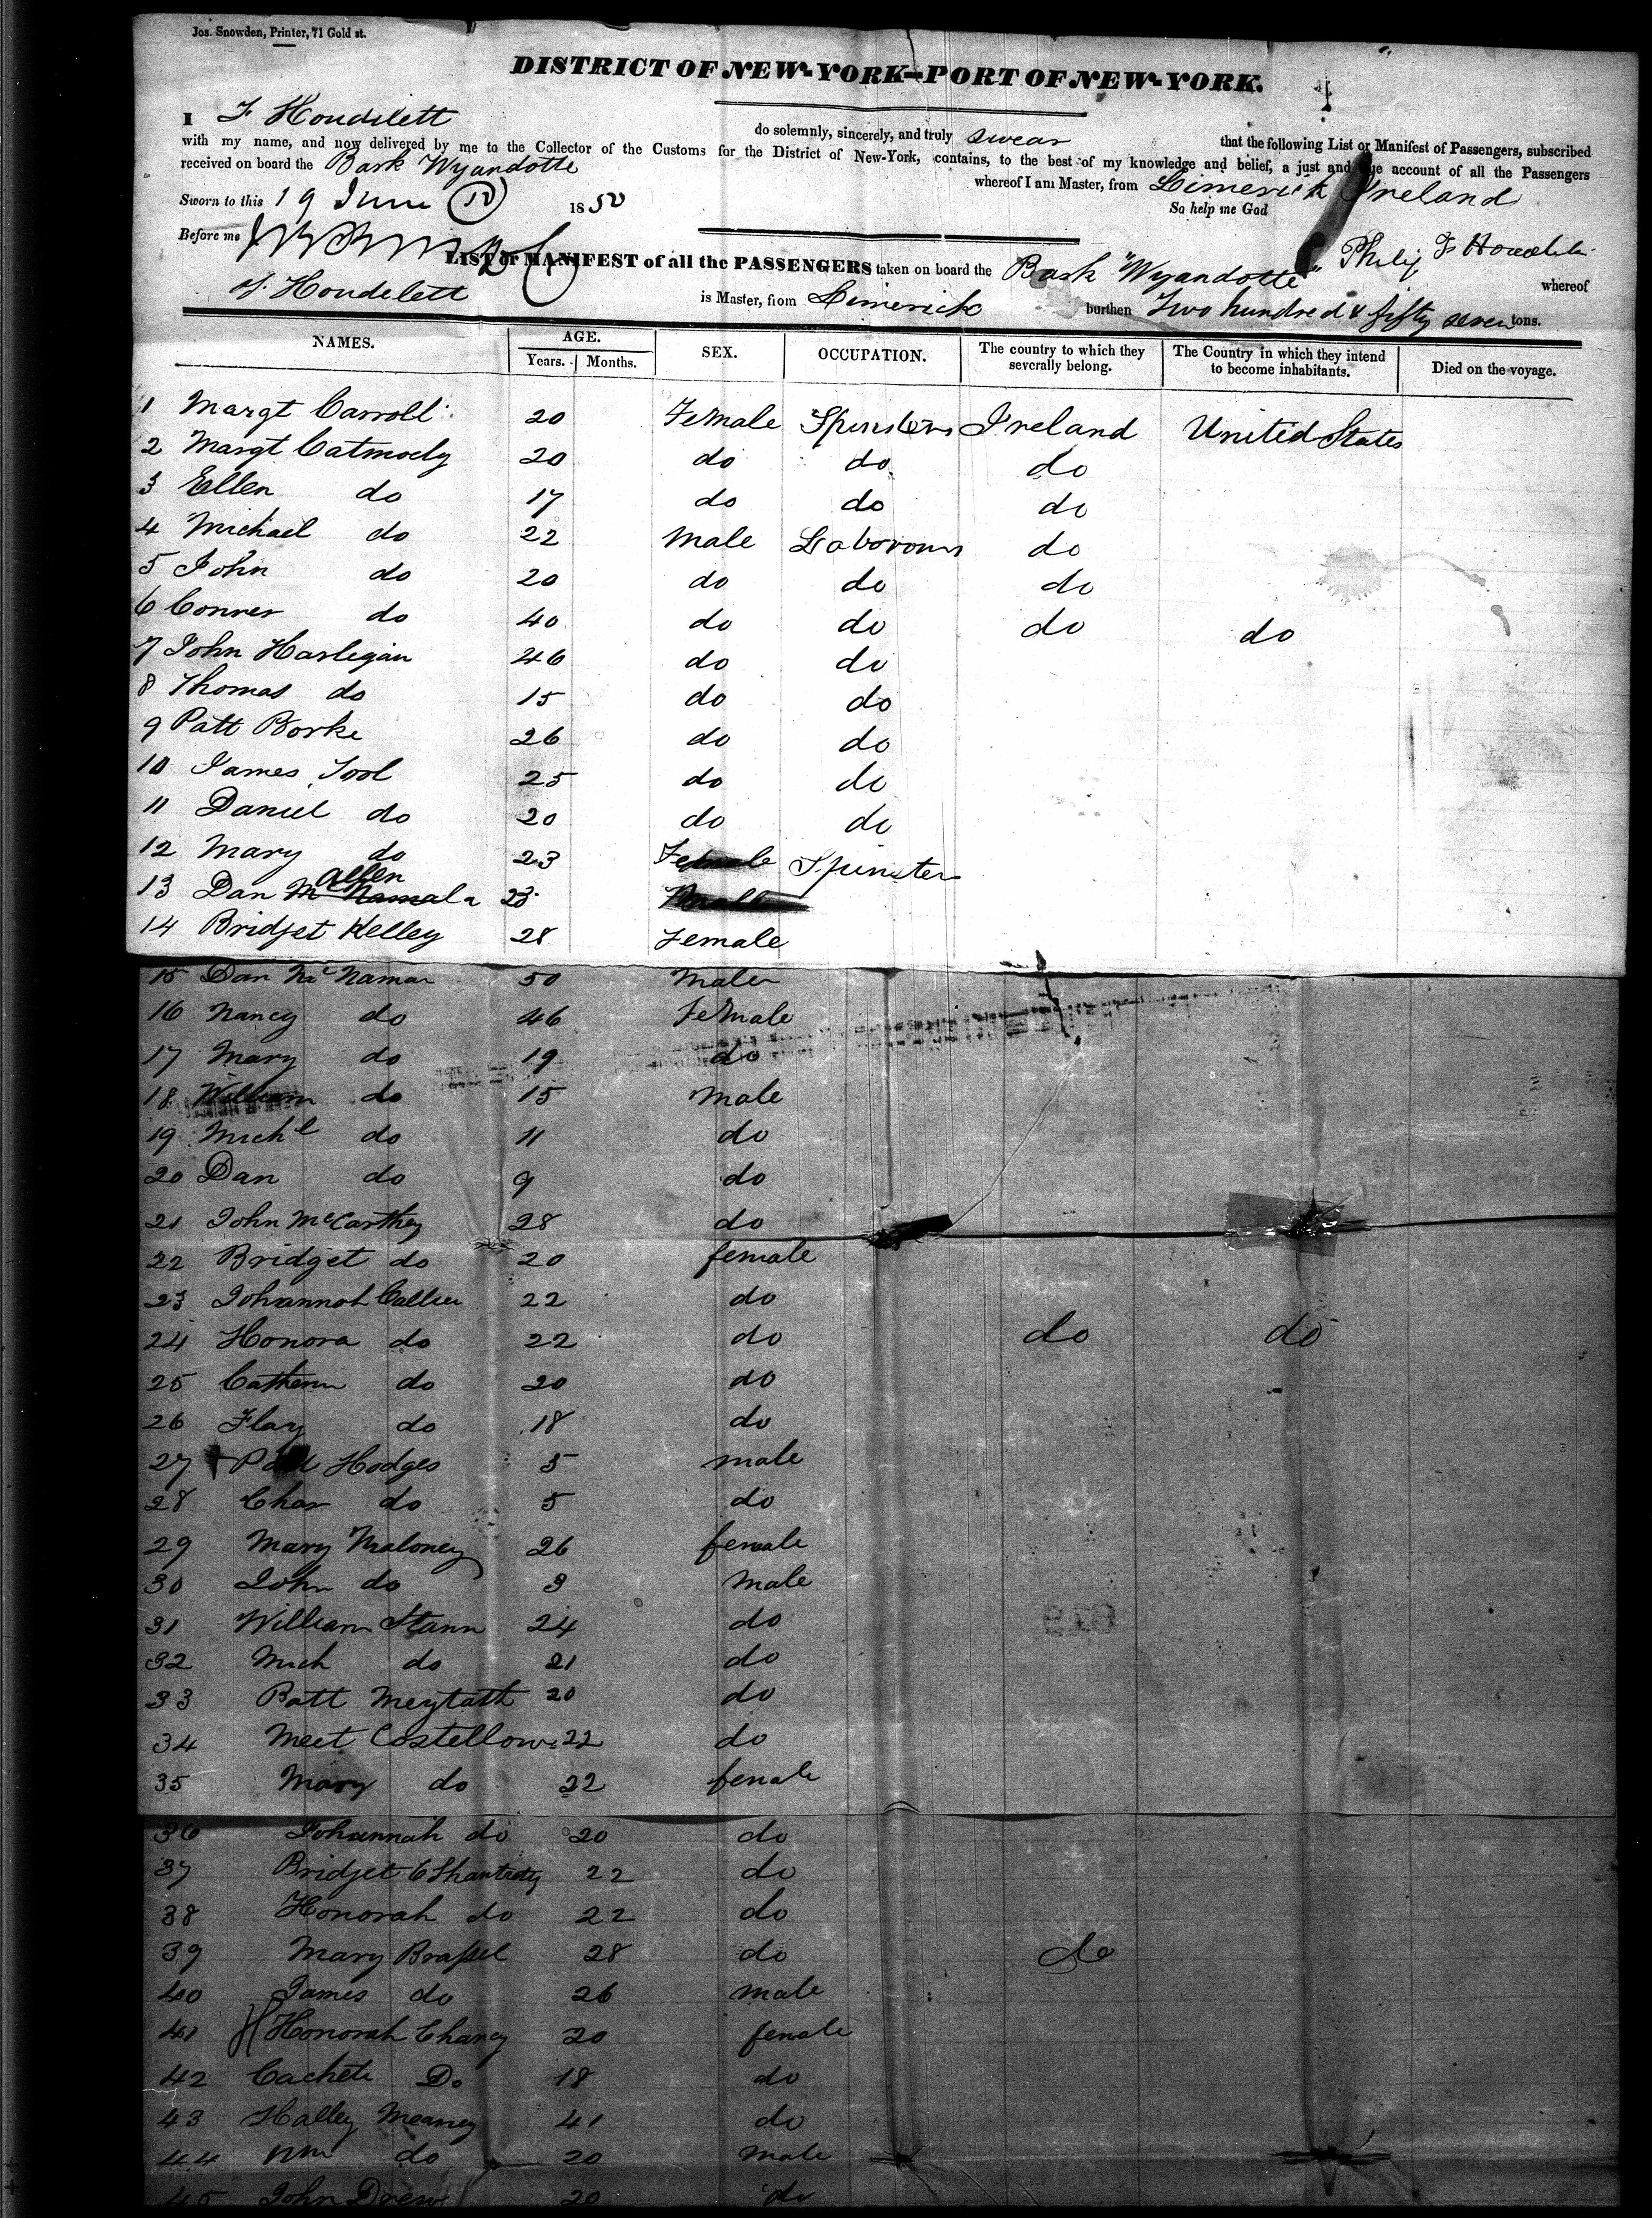 Jos. Snowden, Printer, 71 Gold st.
DISTRICT OF NEW-YORK—PORT OF NEW-YORK.
I F Houdelett do solemnly, sincerely, and truly swear that the following List or Manifest of Passengers, subscribed
with my name, and now delivered by me to the Collector of the Customs for the District of New-York, contains, to the best of my knowledge and belief, a just and true account of all the Passengers
received on board the Bark Wyandotte whereof I am Master, from Limerick Ireland
Sworn to this 19 June 1850 So help me God
Before me Philip F Houdelett
LIST or MANIFEST of all the PASSENGERS taken on board the Bark "Wyandotte" whereof
F. Houdelett is Master, from Limerick burthen Two hundred & fifty seven tons.
NAMES. AGE. SEX. OCCUPATION. The country to which they severally belong. The Country in which they intend to become inhabitants. Died on the voyage.
Years. Months.
1 Margt Carroll 20 Female Spinsters Ireland United States
2 Margt Catmody 20 do do do
3 Ellen do 17 do do do
4 Michael do 22 Male Laborours do
5 John do 20 do do do
6 Conner do 40 do do do do
7 John Harlegan 46 do do
8 Thomas do 15 do do
9 Patt Borke 26 do do
10 James Tool 25 do do
11 Daniel do 20 do do
12 Mary do 23 Female Spinster
13 Dan Allen 23
14 Bridget Kelley 28 Female
15 Dan Mc Namar 50 Male
16 Nancy do 46 Female
17 Mary do 19 do
18 William do 15 Male
19 Michl do 11 do
20 Dan do 9 do
21 John McCarthey 28 do
22 Bridget do 20 female
23 Johannah 22 do
24 Honora do 22 do do do
25 Cathern do 20 do
26 Flay do 18 do
27 Hodges 5 male
28 Char do 5 do
29 Mary Maloney 26 female
30 John do 3 Male
31 William Stann 24 do
32 Mich do 21 do
33 Patt 20 do
34 Costellow 22 do
35 Mary do 22 female
36 Johannah do 20 do
37 Bridget 22 do
38 Honorah do 22 do
39 Mary Brassel 28 do do
40 James do 26 male
41 Honorah Chaney 20 female
42 Do 18 do
43 Halley Meaney 41 do
44 Wm do 20 Male
45 John Drew 20 do